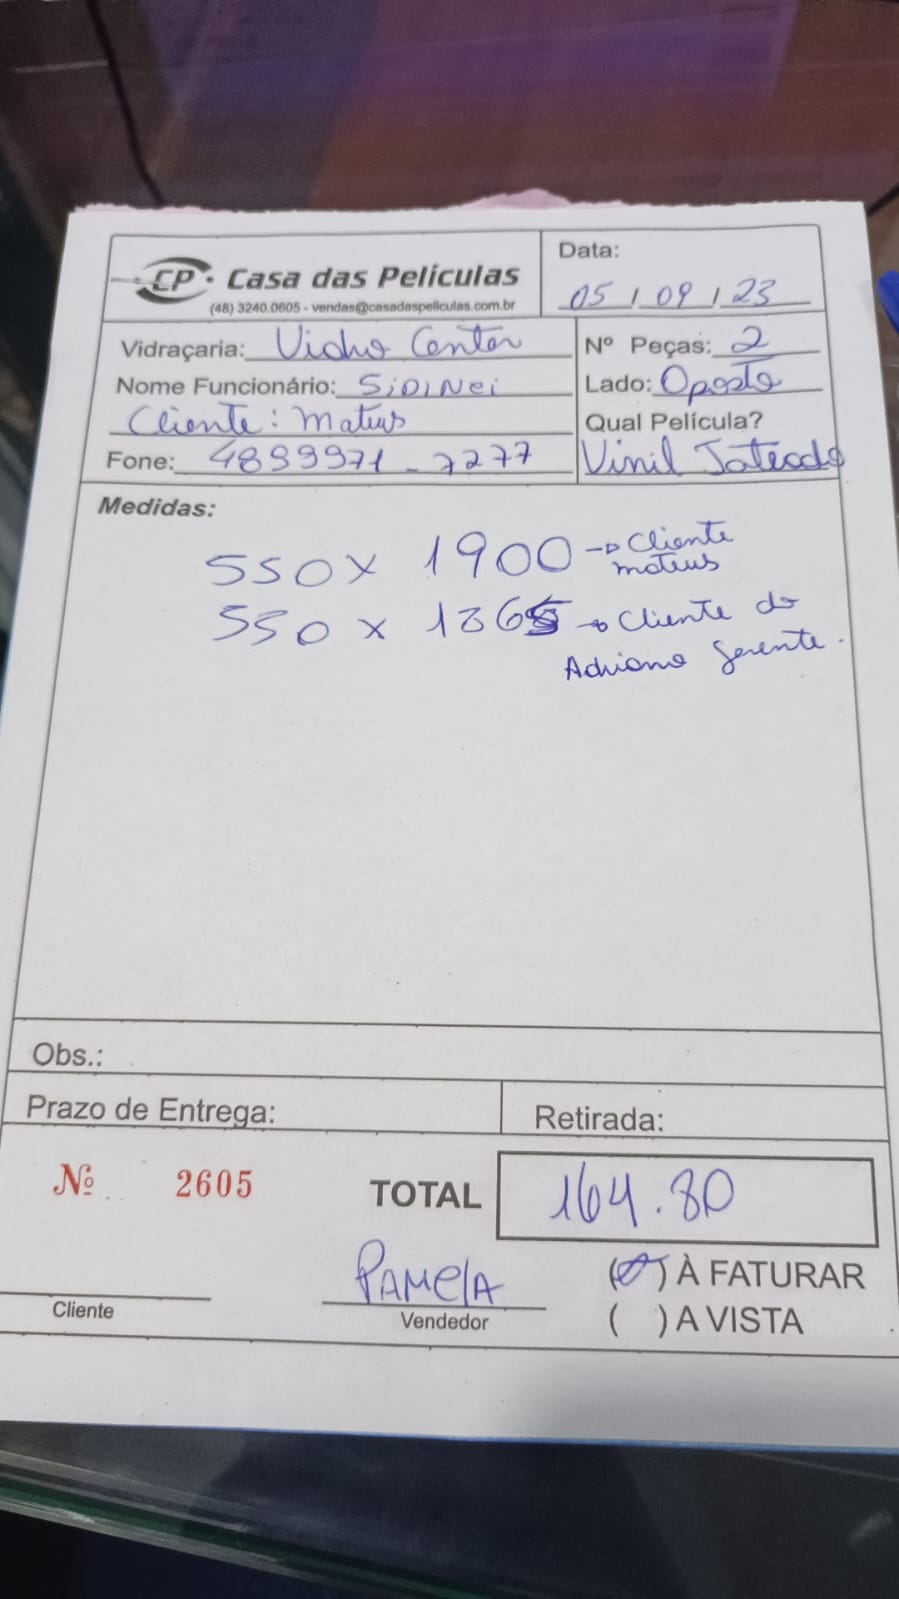 CP Casa das Películas
(48) 3240.0605 - vendas@casadaspeliculas.com.br
Data:
05 / 09 / 23
Vidraçaria: Vidro Center
Nº Peças: 2
Nome Funcionário: SiDiNei
Lado: Oposto
Cliente: Mateus
Qual Película?
Fone: 4899971-7277
Vinil Jateado
Medidas:
550 x 1900 → Cliente
mateus
550 x 1365 → Cliente do
Adriano Gerente.
Obs.:
Prazo de Entrega:
Retirada:
Nº 2605
TOTAL 164.80
PAMelA
( ) À FATURAR
Cliente
Vendedor
( ) A VISTA